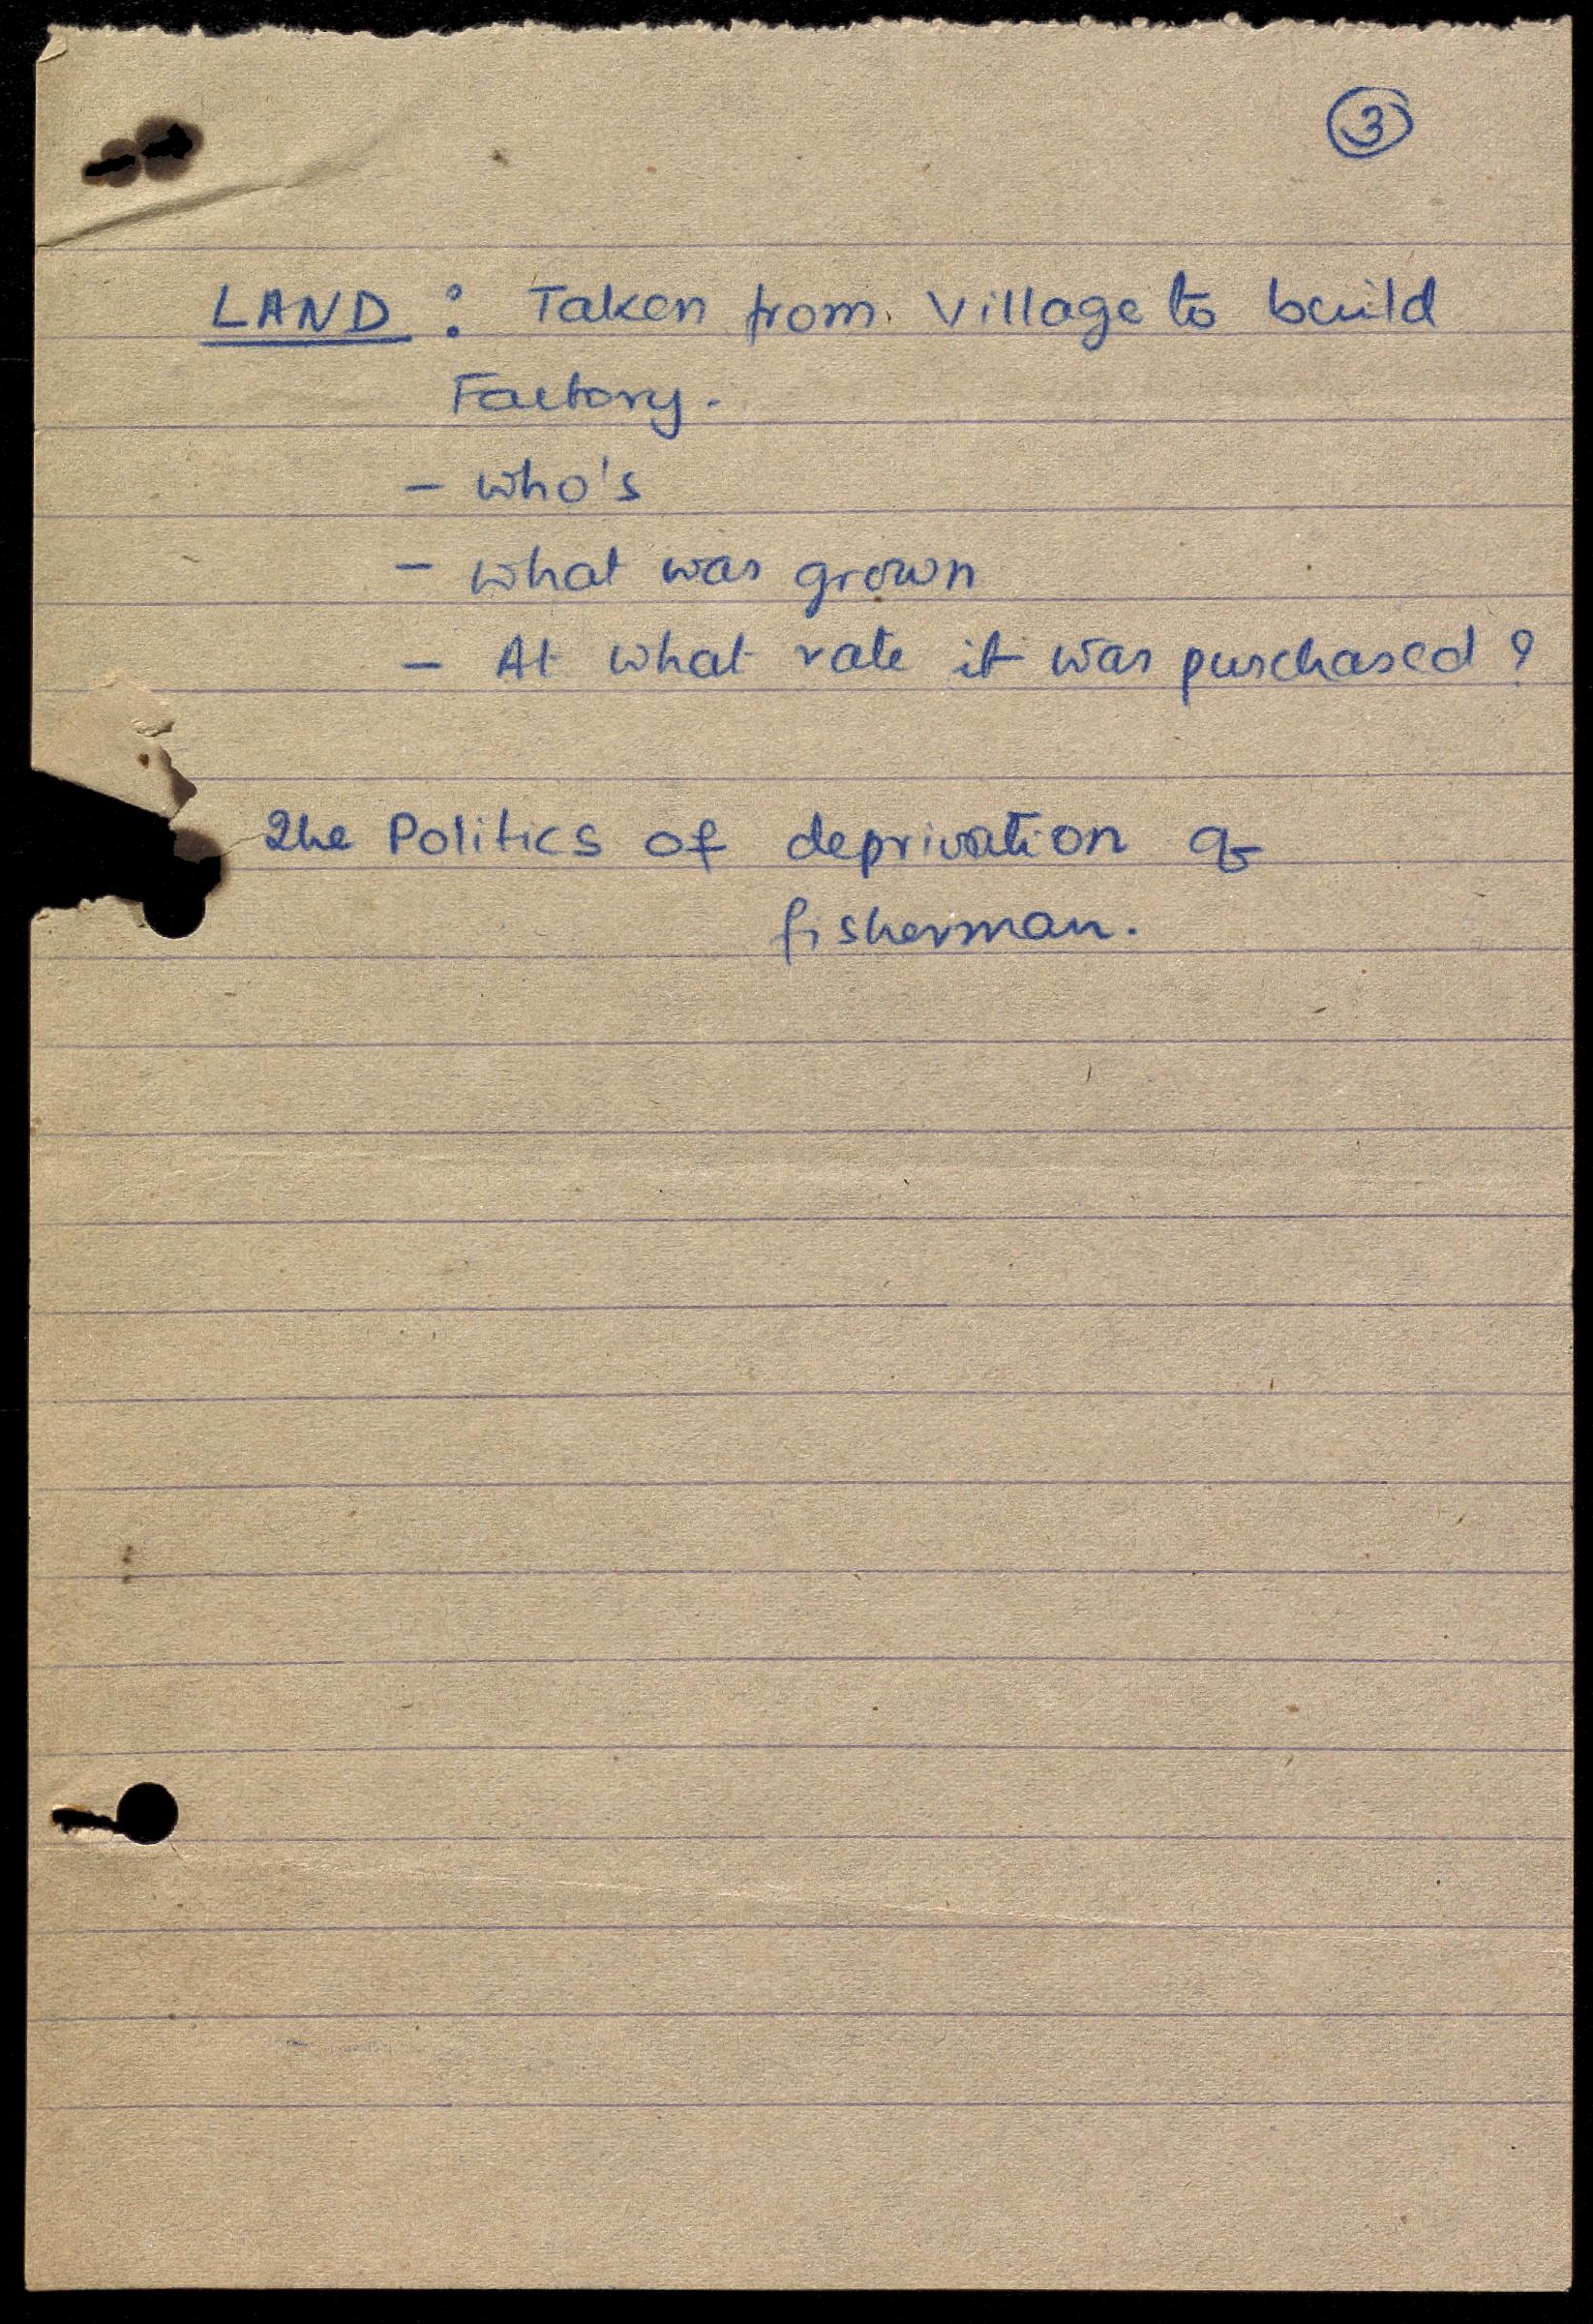 3
LAND : Taken from Village to build
Factory.
- who's
- what was grown
- At what rate it was purchased ?
The Politics of deprivation of
fisherman.